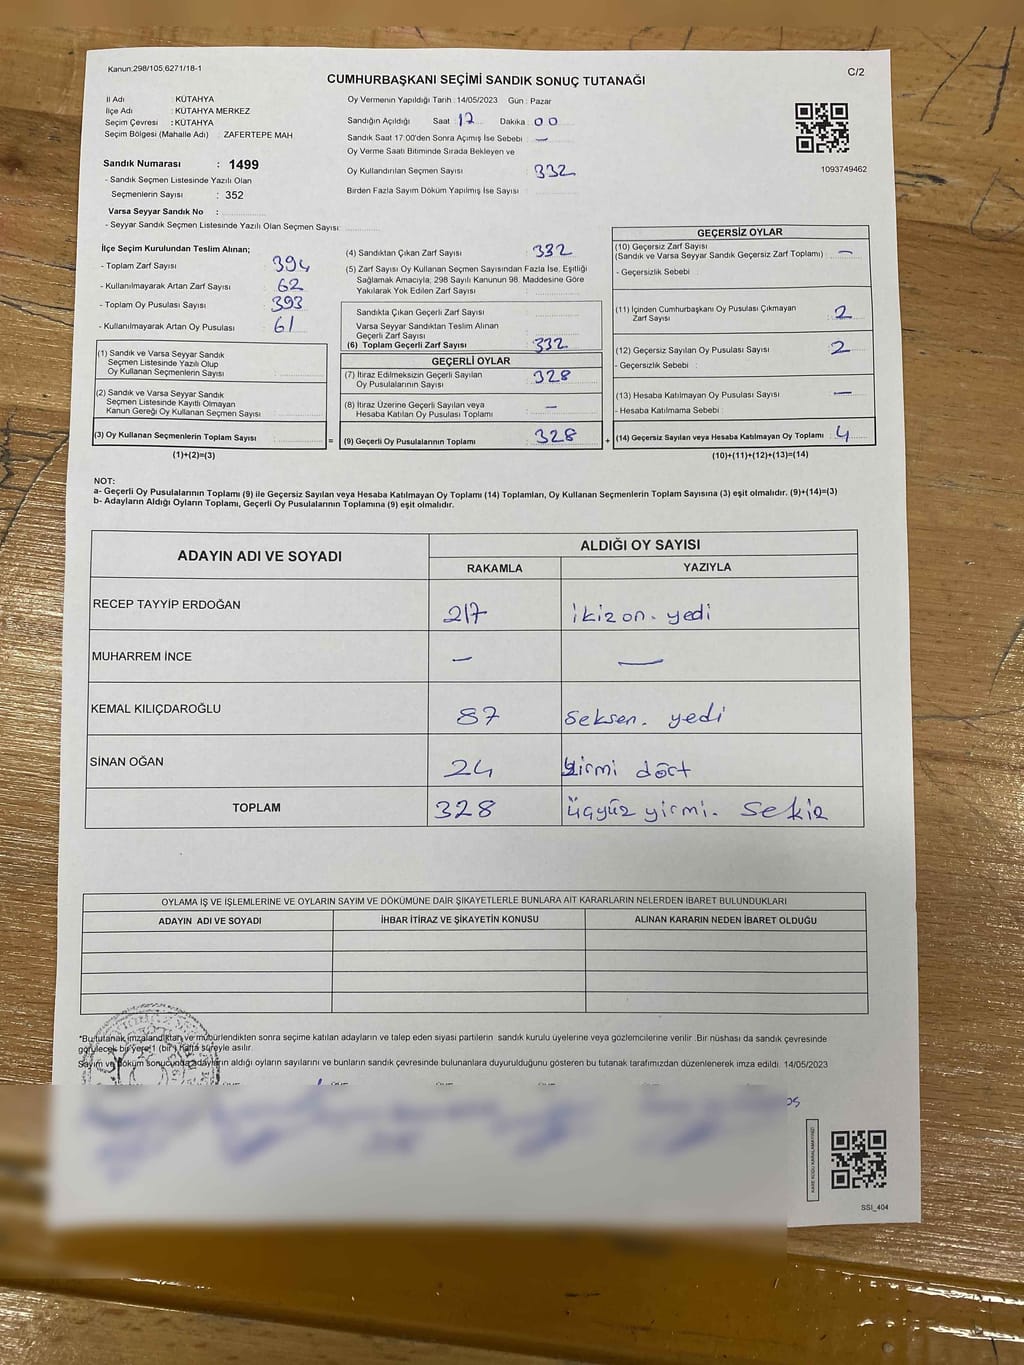 Kanun.298/105,6271/18-1
CUMHURBAŞKANI SEÇİMİ SANDIK SONUÇ TUTANAĞI
C/2
İl Adı : KÜTAHYA
İlçe Adı : KÜTAHYA MERKEZ
Seçim Çevresi : KÜTAHYA
Seçim Bölgesi (Mahalle Adı) : ZAFERTEPE MAH.
Sandık Numarası : 1499
- Sandık Seçmen Listesinde Yazılı Olan
Seçmenlerin Sayısı : 352
Varsa Seyyar Sandık No :
- Seyyar Sandık Seçmen Listesinde Yazılı Olan Seçmen Sayısı:
Oy Vermenin Yapıldığı Tarih : 14/05/2023 Gün : Pazar
Sandığın Açıldığı Saat 17 Dakika : 00
Sandık Saat 17:00'den Sonra Açımış İse Sebebi : —
Oy Verme Saati Bitiminde Sırada Bekleyen ve
Oy Kullandırılan Seçmen Sayısı : 332
Birden Fazla Sayım Döküm Yapılmış İse Sayısı :
1093749462
İlçe Seçim Kurulundan Teslim Alınan;
- Toplam Zarf Sayısı : 394
- Kullanılmayarak Artan Zarf Sayısı : 62
- Toplam Oy Pusulası Sayısı : 393
- Kullanılmayarak Artan Oy Pusulası : 61
(1) Sandık ve Varsa Seyyar Sandık
Seçmen Listesinde Yazılı Olup
Oy Kullanan Seçmenlerin Sayısı :
(2) Sandık ve Varsa Seyyar Sandık
Seçmen Listesinde Kayıtlı Olmayan
Kanun Gereği Oy Kullanan Seçmen Sayısı :
(3) Oy Kullanan Seçmenlerin Toplam Sayısı :
(1)+(2)=(3)
(4) Sandıktan Çıkan Zarf Sayısı : 332
(5) Zarf Sayısı Oy Kullanan Seçmen Sayısından Fazla İse, Eşitliği
Sağlamak Amacıyla; 298 Sayılı Kanunun 98. Maddesine Göre
Yakılarak Yok Edilen Zarf Sayısı :
Sandıkta Çıkan Geçerli Zarf Sayısı :
Varsa Seyyar Sandıktan Teslim Alınan
Geçerli Zarf Sayısı :
(6) Toplam Geçerli Zarf Sayısı : 332
GEÇERLİ OYLAR
(7) İtiraz Edilmeksizin Geçerli Sayılan
Oy Pusulalarının Sayısı : 328
(8) İtiraz Üzerine Geçerli Sayılan veya
Hesaba Katılan Oy Pusulası Toplamı : —
= (9) Geçerli Oy Pusulalarının Toplamı : 328 +
GEÇERSİZ OYLAR
(10) Geçersiz Zarf Sayısı
(Sandık ve Varsa Seyyar Sandık Geçersiz Zarf Toplamı) : —
- Geçersizlik Sebebi :
(11) İçinden Cumhurbaşkanı Oy Pusulası Çıkmayan
Zarf Sayısı : 2
(12) Geçersiz Sayılan Oy Pusulası Sayısı : 2
- Geçersizlik Sebebi :
(13) Hesaba Katılmayan Oy Pusulası Sayısı : —
- Hesaba Katılmama Sebebi :
(14) Geçersiz Sayılan veya Hesaba Katılmayan Oy Toplamı : 4
(10)+(11)+(12)+(13)=(14)
NOT:
a- Geçerli Oy Pusulalarının Toplamı (9) ile Geçersiz Sayılan veya Hesaba Katılmayan Oy Toplamı (14) Toplamları, Oy Kullanan Seçmenlerin Toplam Sayısına (3) eşit olmalıdır. (9)+(14)=(3)
b- Adayların Aldığı Oyların Toplamı, Geçerli Oy Pusulalarının Toplamına (9) eşit olmalıdır.
ADAYIN ADI VE SOYADI
ALDIĞI OY SAYISI
RAKAMLA YAZIYLA
RECEP TAYYİP ERDOĞAN 217 ikiz on. yedi
MUHARREM İNCE — —
KEMAL KILIÇDAROĞLU 87 seksen. yedi
SİNAN OĞAN 24 yirmi dört
TOPLAM 328 üçyüz yirmi. sekiz
OYLAMA İŞ VE İŞLEMLERİNE VE OYLARIN SAYIM VE DÖKÜMÜNE DAİR ŞİKAYETLERLE BUNLARA AİT KARARLARIN NELERDEN İBARET BULUNDUKLARI
ADAYIN ADI VE SOYADI İHBAR İTİRAZ VE ŞİKAYETİN KONUSU ALINAN KARARIN NEDEN İBARET OLDUĞU
*Bu tutanak imzalandıktan ve mühürlendikten sonra seçime katılan adayların ve talep eden siyasi partilerin sandık kurulu üyelerine veya gözlemcilerine verilir. Bir nüshası da sandık çevresinde
görülecek bir yere 1 (bir) hafta süreyle asılır.
Sayım ve döküm sonucunda adayların aldığı oyların sayılarını ve bunların sandık çevresinde bulunanlara duyurulduğunu gösteren bu tutanak tarafımızdan düzenlenerek imza edildi. 14/05/2023
KARE KODU KARALAMAYINIZ!
SSI_404